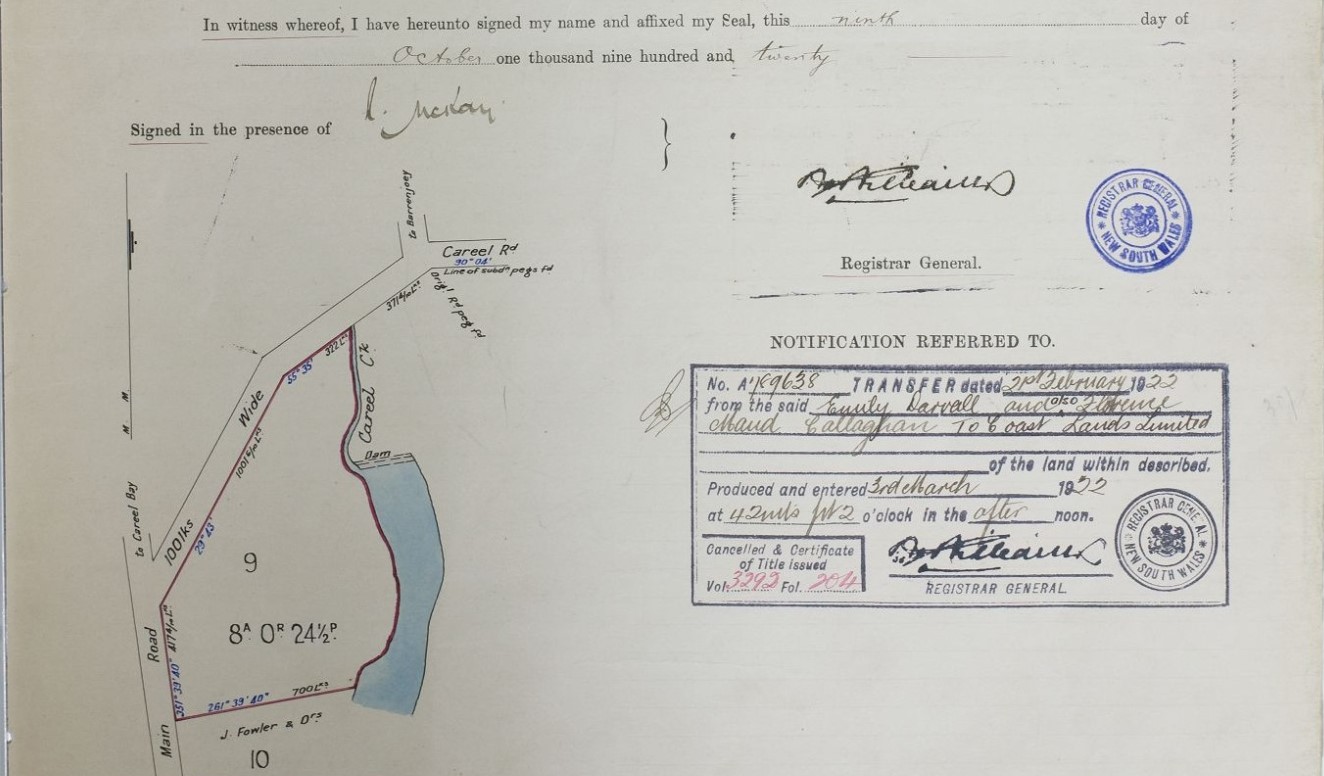 In witness whereof, I have hereunto signed my name and affixed my Seal, this ninth day of
October one thousand nine hundred and twenty
Signed in the presence of
McKay
Registrar General.
REGISTRAR GENERAL
NEW SOUTH WALES
to Barrenjoey
Careel Rd
90° 04'
Line of subdn pegs fd
Origl Rd peg fd
322 Lks
55° 35'
Careel Ck
Wide
Dam
M. M.
to Careel Bay
100 lks
29° 43'
9
8A 0R 24½P.
Road
Main
351° 39' 40"
261° 39' 40" 700 Lks
J. Fowler & Ors
10
NOTIFICATION REFERRED TO.
No. A 189638 TRANSFER dated 21st February 1922
from the said Emily Darvall and also Florence
Maud Callaghan To Coast Lands Limited
of the land within described.
Produced and entered 3rd March 1922
at 42 mts pt 2 o'clock in the after noon.
Cancelled & Certificate
of Title issued
Vol. 3292 Fol. 204
REGISTRAR GENERAL
REGISTRAR GENERAL
NEW SOUTH WALES